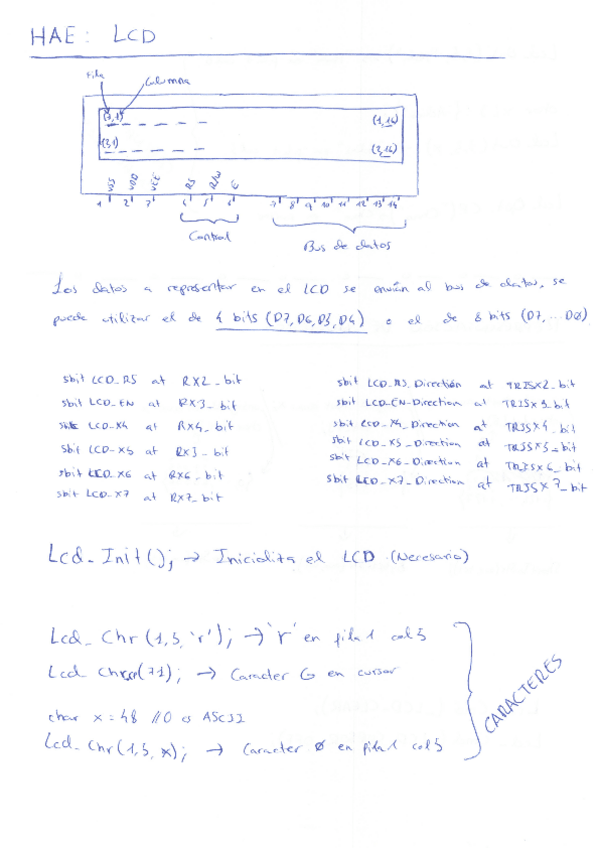 HAE: LCD
Fila Columna
(1,1) (1,16)
(2,1) (2,16)
VSS VDD VEE RS R/W E
1 2 3 4 5 6 7 8 9 10 11 12 13 14
Control Bus de datos
Los datos a representar en el LCD se envían al bus de datos, se
puede utilizar el de 4 bits (D7, D6, D5, D4) o el de 8 bits (D7, ... D0)
sbit LCD_RS at RX2_bit
sbit LCD_EN at RX3_bit
sbit LCD_X4 at RX4_bit
sbit LCD_X5 at RX5_bit
sbit LCD_X6 at RX6_bit
sbit LCD_X7 at RX7_bit
sbit LCD_RS_Direction at TRISX2_bit
sbit LCD_EN_Direction at TRISX3_bit
sbit LCD_X4_Direction at TRISX4_bit
sbit LCD_X5_Direction at TRISX5_bit
sbit LCD_X6_Direction at TRISX6_bit
sbit LCD_X7_Direction at TRISX7_bit
Lcd_Init(); → Inicializa el LCD (Necesario)
Lcd_Chr(1,5,'r'); → 'r' en fila 1 col 5
Lcd (71); → Caracter G en cursor
char x = 48 //0 es ASCII
Lcd_Chr(1,5,x); → Caracter 0 en fila 1 col 5
CARACTERES